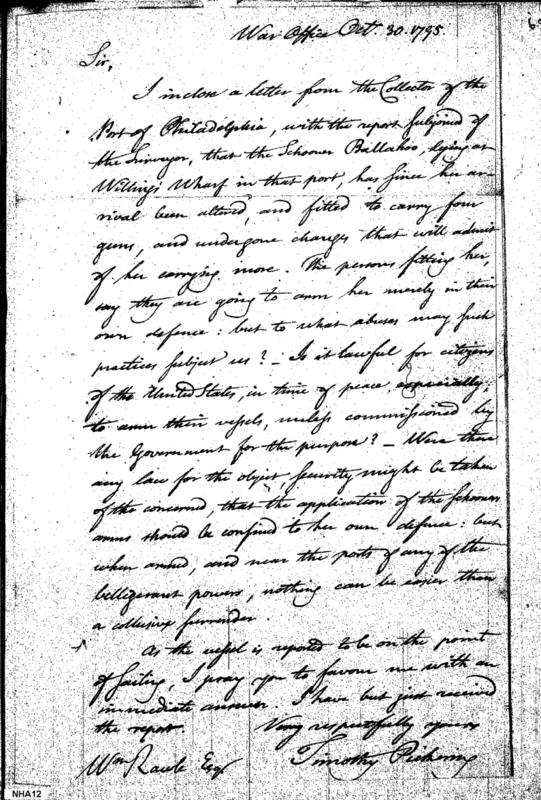 War Office Oct. 30. 1795.
Sir,
I inclose a letter from the Collector of the
Port of Philadelphia, with the report subjoined of
the Surveyor, that the Schooner Ballahoo, lying at
Willing's Wharf in that port, has since her ar-
rival been altered, and fitted to carry four
guns, and undergone changes that will admit
of her carrying more. The persons fitting her,
say they are going to arm her merely in their
own defence: but to what abuses may such
practices subject us? - Is it lawful for citizens
of the United States, in time of peace, especially,
to arm their vessels, unless commissioned by
the Government for the purpose? - Were there
any law for the object, security might be taken
of the concerned, that the application of the Schooners
arms should be confined to her own defence: but
when armed, and near the ports of any of the
belligerant powers, nothing can be easier than
a collusive surrender.
As the vessel is reported to be on the point
of sailing, I pray you to favour me with an
immediate answer. I have but just received
the report. Very respectfully yours
Wm Rawle Esqr. Timothy Pickering
NHA12